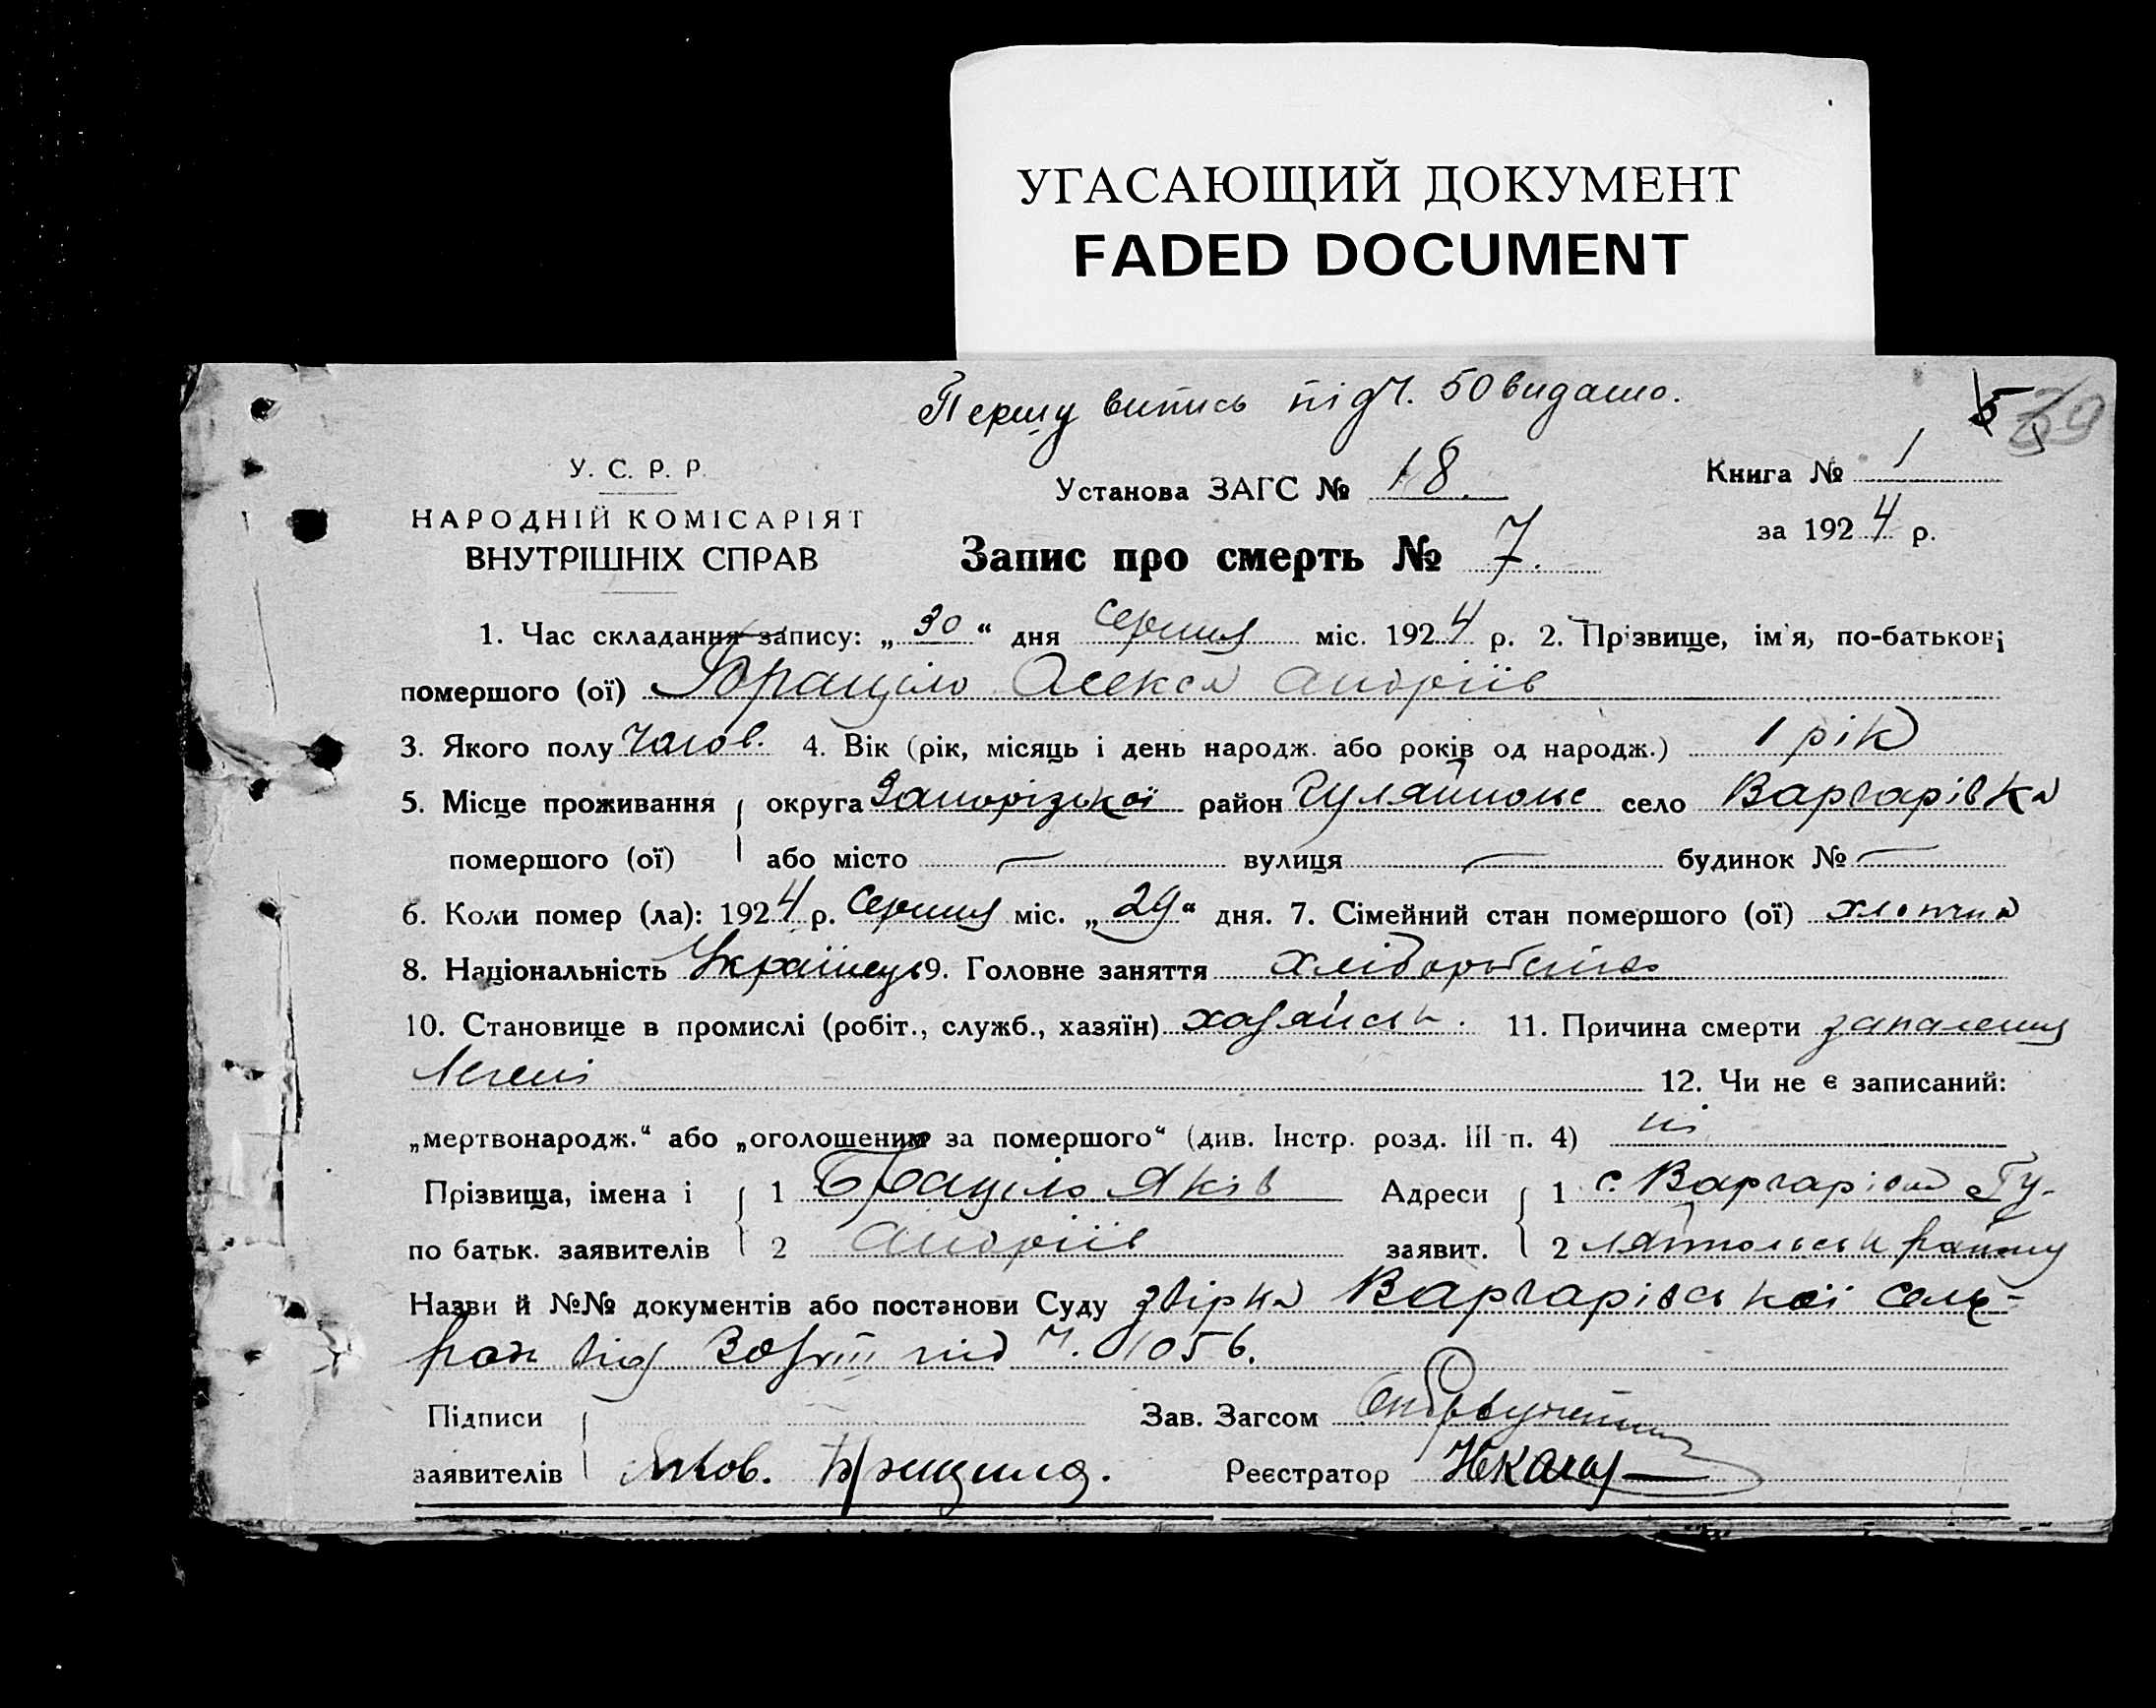 УГАСАЮЩИЙ ДОКУМЕНТ
FADED DOCUMENT
Першу випись під Ч. 50 видано.
У. С. Р. Р.
НАРОДНІЙ КОМІСАРІЯТ
ВНУТРІШНІХ СПРАВ
Установа ЗАГС № 18.
Книга № 1
за 1924 р.
Запис про смерть № 7.
1. Час складання запису: „30“ дня серпня міс. 1924 р. 2. Прізвище, ім'я, по-батькові
помершого (ої) Браціло Олекса Андріїв
3. Якого полу чолов. 4. Вік (рік, місяць і день народж. або років од народж.) 1 рік
5. Місце проживання округа Запорізької район Гуляйпольс село Варварівка
помершого (ої) або місто — вулиця — будинок № —
6. Коли помер (ла): 1924 р. серпня міс. „29“ дня. 7. Сімейний стан помершого (ої) хлопчик
8. Національність Українець 9. Головне заняття хліборобство
10. Становище в промислі (робіт., служб., хазяїн) 11. Причина смерти запалення
легені 12. Чи не є записаний:
„мертвонародж.“ або „оголошеним за помершого“ (див. Інстр. розд. III п. 4) ні
Прізвища, імена і 1 Браціло Яків Адреси 1 с. Варварівка Гу-
по батьк. заявителів 2 Андріїв заявит. 2 ляйпольськ району
Назви й №№ документів або постанови Суду Варварівської сель-
ради від 30/VIII під ч. 1056.
Підписи Зав. Загсом
заявителів Яков. Реєстратор